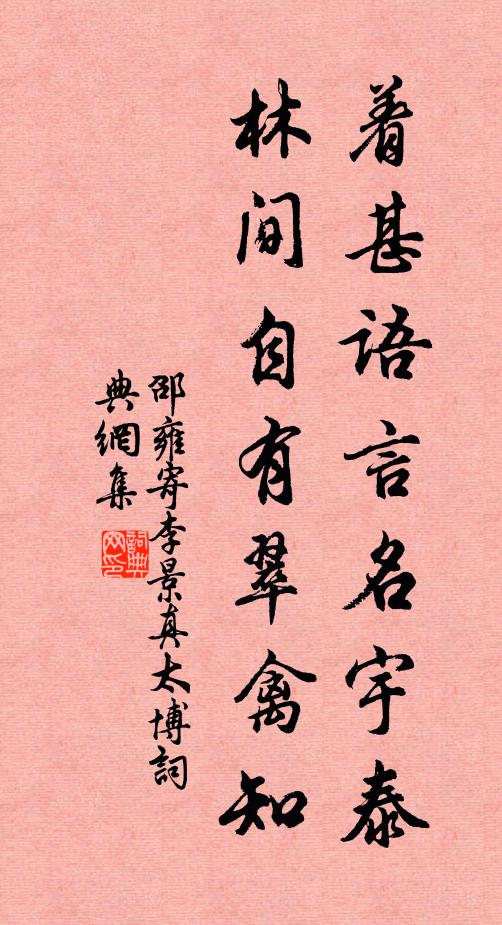 着甚語言名宇泰
林間自有翠禽知
邵雍寄李景真太博詞
典網集
詞典
网印